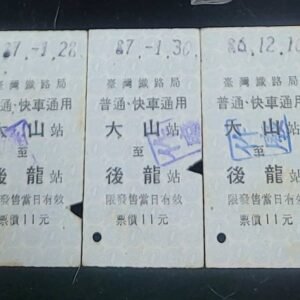 87.-1.28
臺灣鐵路局
普通、快車通用
山站
至
後龍站
限發售當日有效
票價11元
87.-1.30.
臺灣鐵路局
普通、快車通用
大山站
至
後龍站
限發售當日有效
票價11元
86.12.1
臺灣鐵路局
普通、快車通用
大山站
至
後龍站
限發售當日有效
票價11元